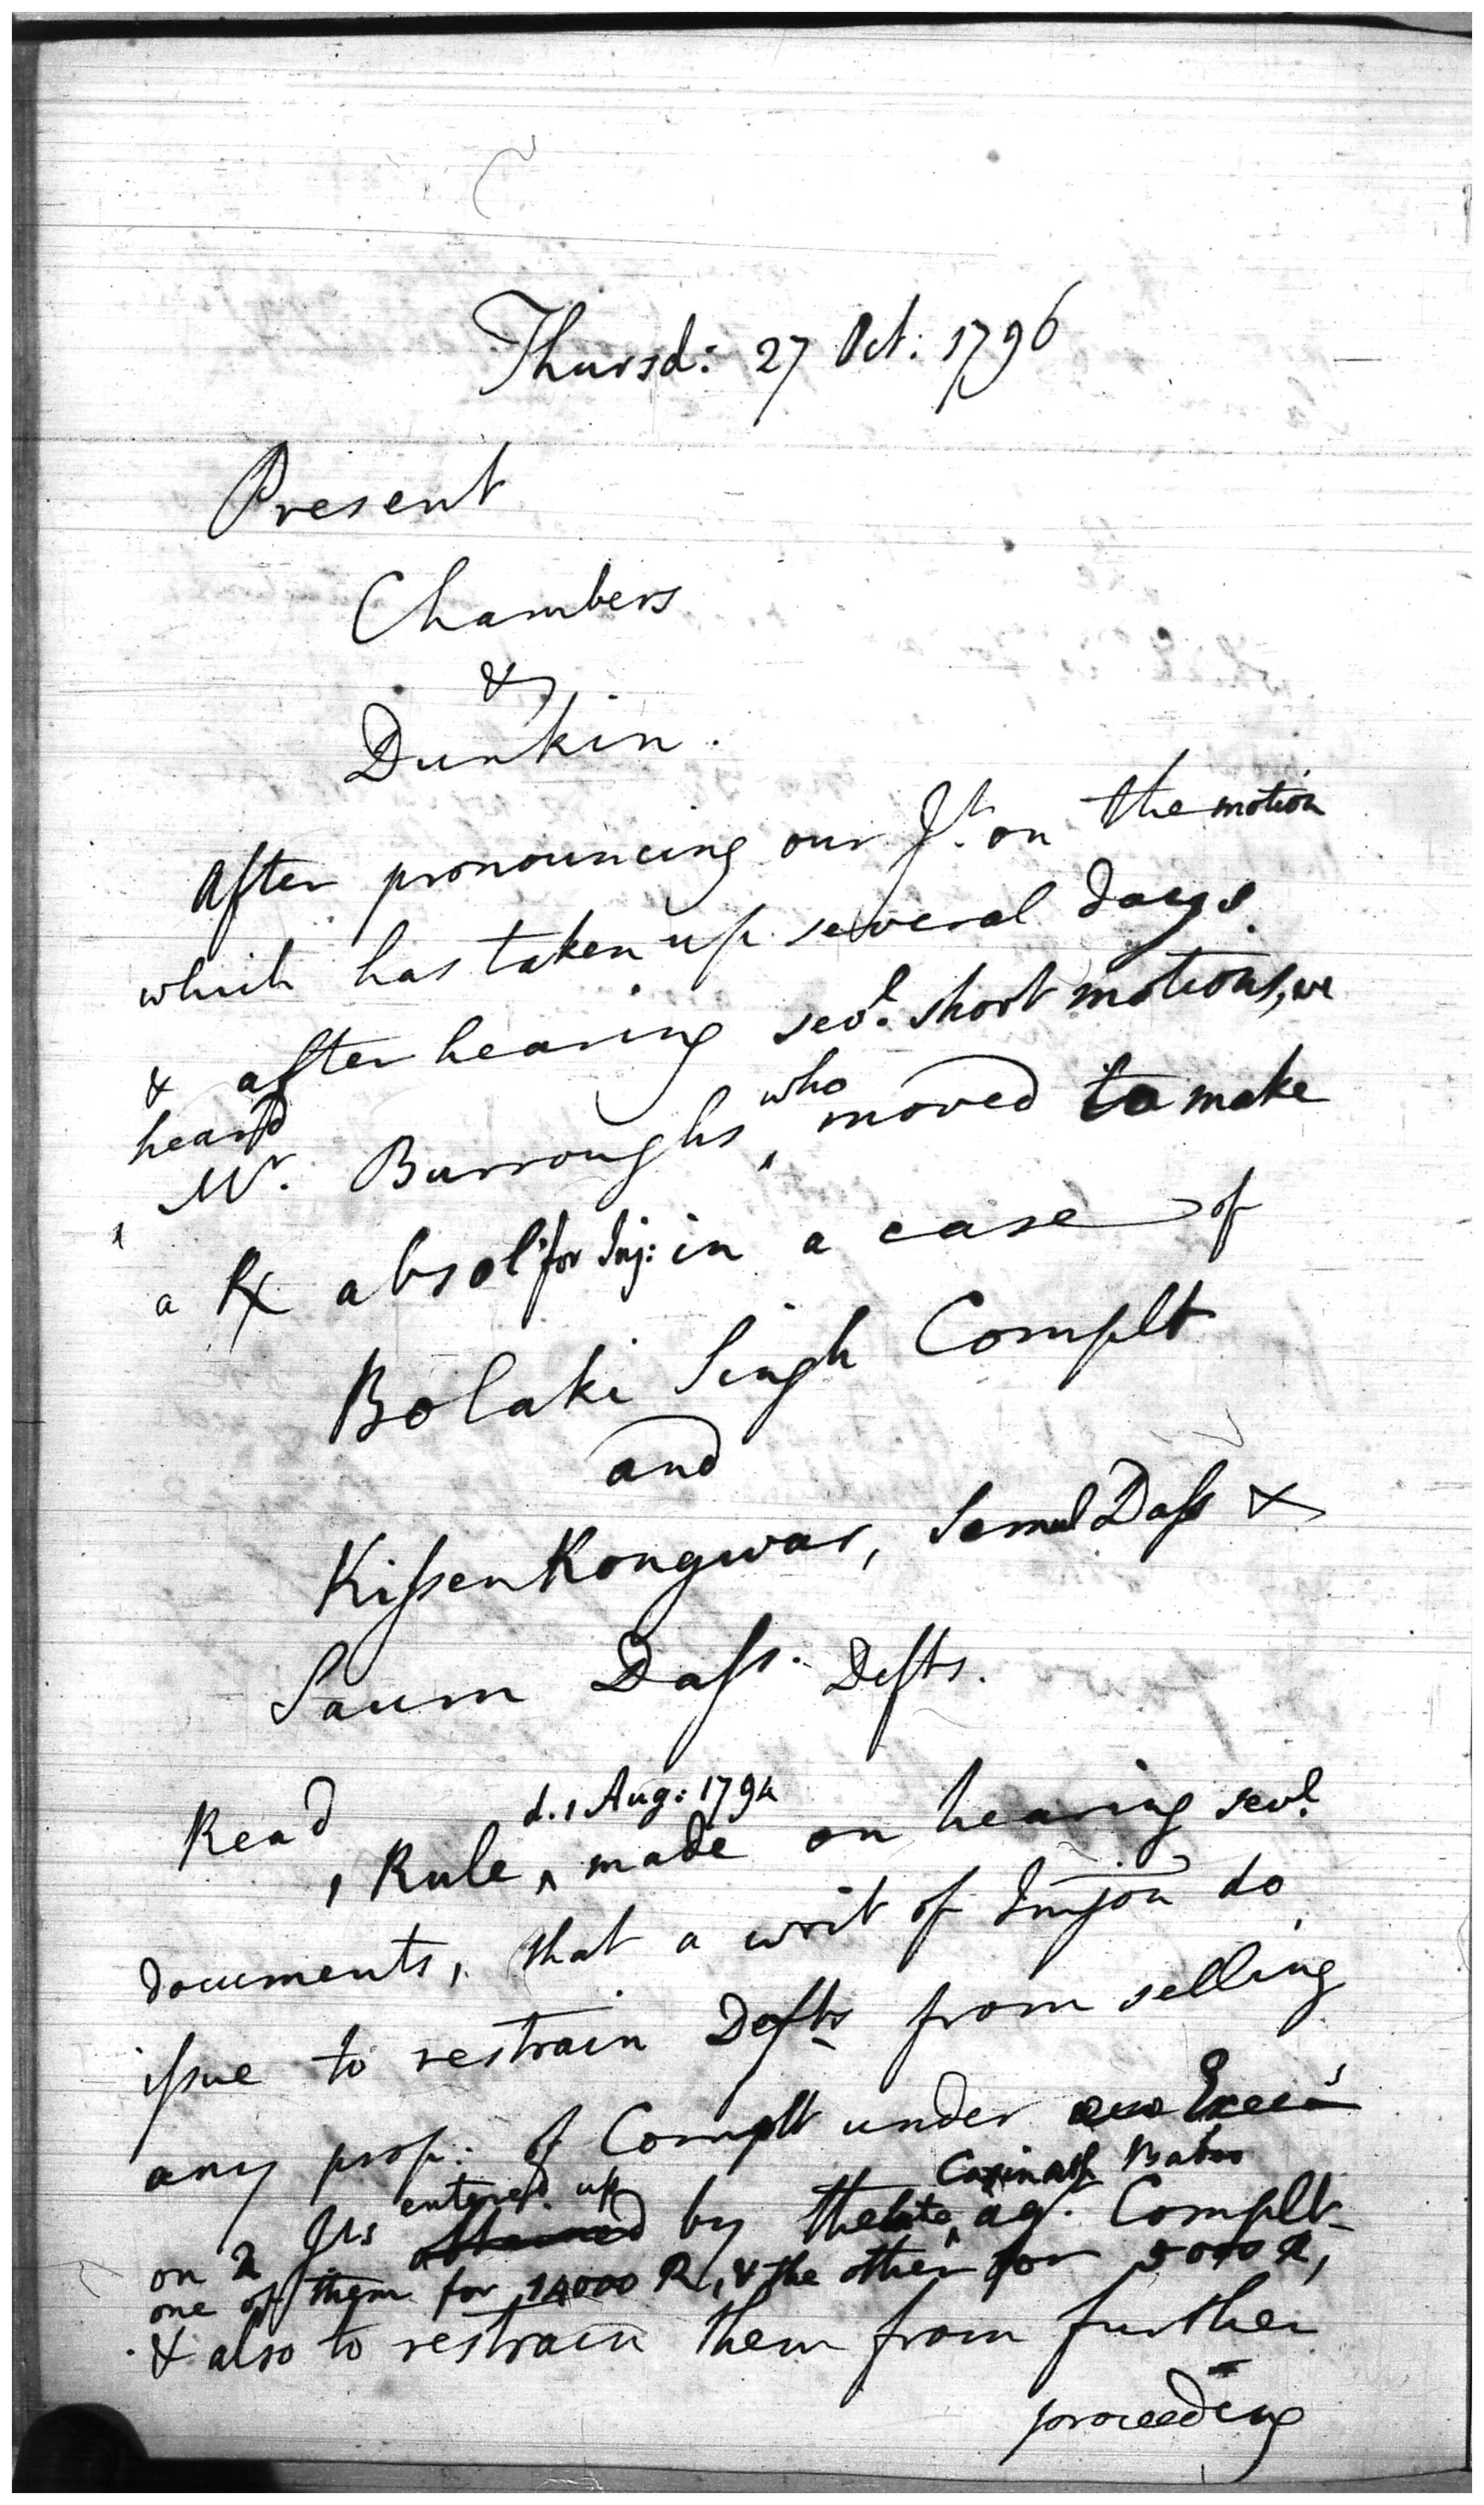 Thursd: 27 Oct: 1796
Present
Chambers
&
Dunkin.
After pronouncing our Jt. on the motion
which has taken up several days
& after hearing sevl. short motions, we
heard
Mr. Burroughs who moved to make
a Rx absol: for Inj: in a case of
Bolaki Singh Complt
and
Kissen Kongwar, Samul Dass &
Saum Dass. Defts.
Read
d. 1 Aug: 1794
Rule made on hearing sevl.
documents, that a writ of Injon do
issue to restrain Defts from selling
any prop: of Complt under Execn
entered up Casinath Baboo
on 2 Jts obtained by the late agt. Complt
one of them for 14000 R, & the other for 5000 R,
& also to restrain them from further
proceeding